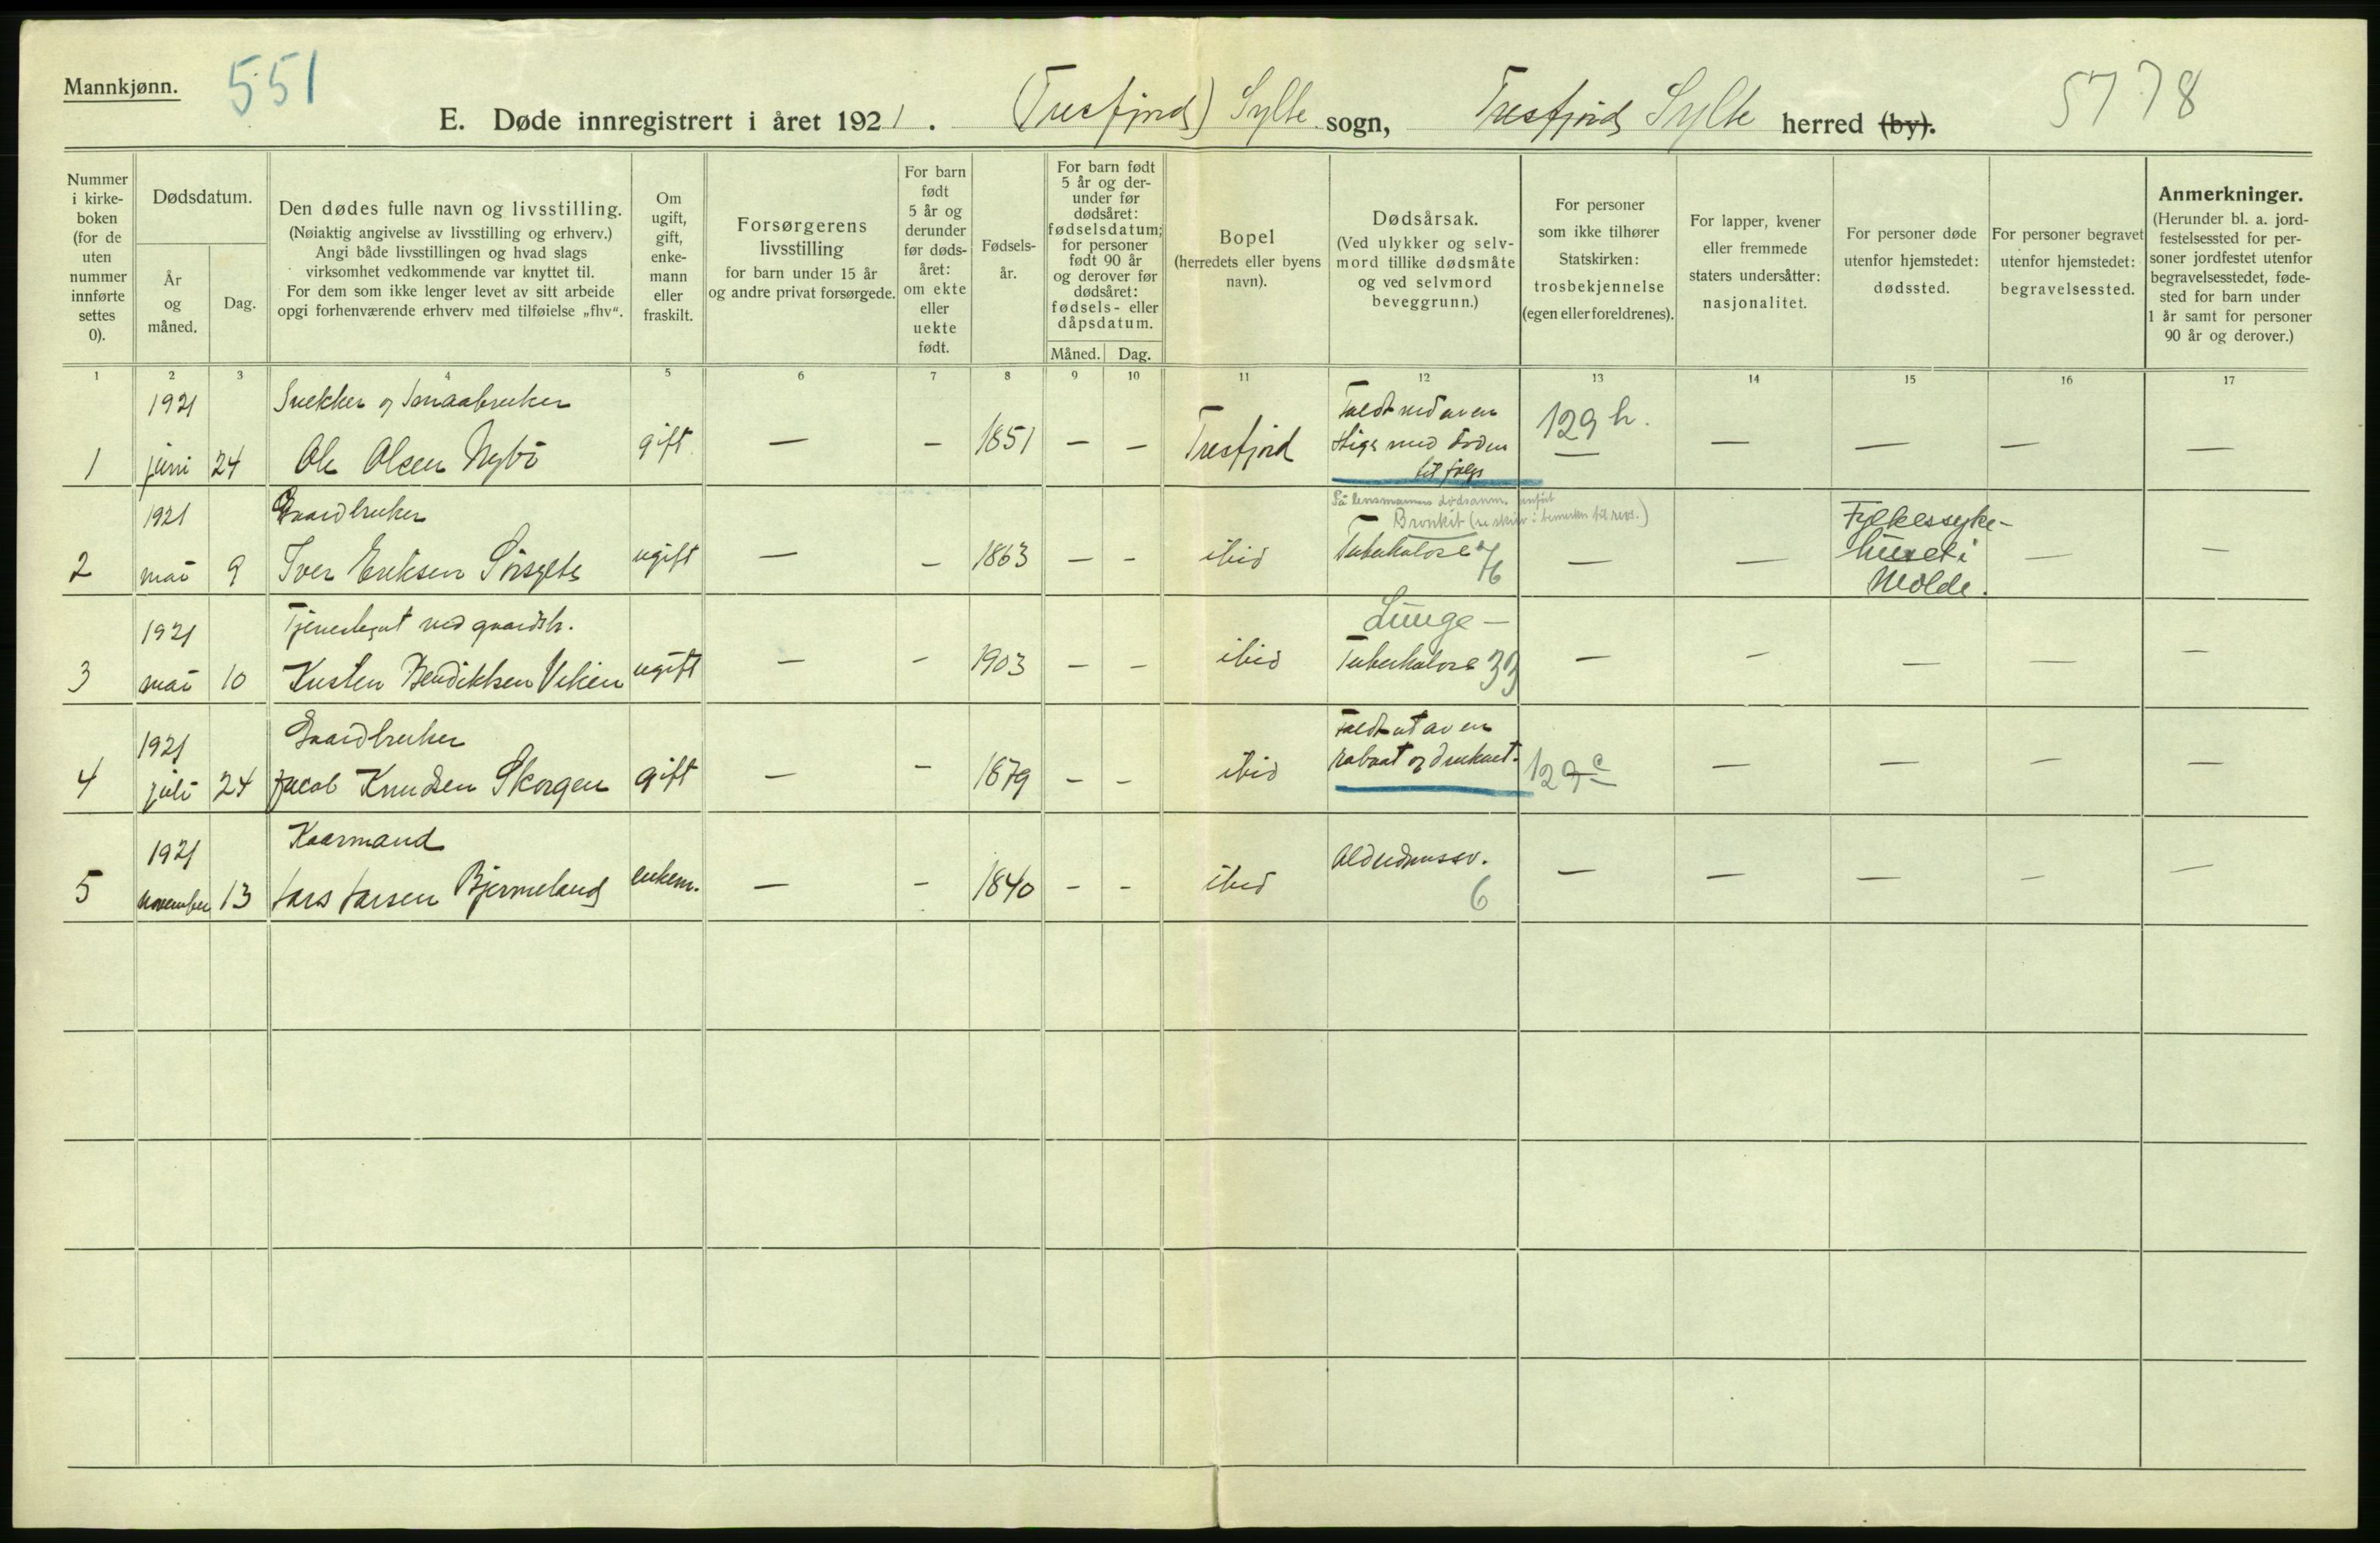 Mannkjønn.
551
E. Døde innregistrert i året 1921. (Tresfjord) Sylte sogn, Tresfjord Sylte herred (by).
5778
Nummer i kirkeboken (for de uten nummer innførte settes 0).
Dødsdatum.
År og måned.
Dag.
Den dødes fulle navn og livsstilling.
(Nøiaktig angivelse av livsstilling og erhverv.)
Angi både livsstillingen og hvad slags
virksomhet vedkommende var knyttet til.
For dem som ikke lenger levet av sitt arbeide
opgi forhenværende erhverv med tilføielse „fhv“.
Om ugift, gift, enkemann eller fraskilt.
Forsørgerens livsstilling
for barn under 15 år
og andre privat forsørgede.
For barn født 5 år og derunder før dødsåret: om ekte eller uekte født.
Fødselsår.
For barn født 5 år og derunder før dødsåret: fødselsdatum; for personer født 90 år og derover før dødsåret: fødsels- eller dåpsdatum.
Måned. Dag.
Bopel
(herredets eller byens navn).
Dødsårsak.
(Ved ulykker og selvmord tillike dødsmåte og ved selvmord beveggrunn.)
For personer som ikke tilhører Statskirken: trosbekjennelse (egen eller foreldrenes).
For lapper, kvener eller fremmede staters undersåtter: nasjonalitet.
For personer døde utenfor hjemstedet: dødssted.
For personer begravet utenfor hjemstedet: begravelsessted.
Anmerkninger.
(Herunder bl. a. jordfestelsessted for personer jordfestet utenfor begravelsesstedet, fødested for barn under 1 år samt for personer 90 år og derover.)
1 2 3 4 5 6 7 8 9 10 11 12 13 14 15 16 17
1921 Snekker og Smaabruker Faldt ned av en
1 juni 24 Ole Olsen Nybö gift — – 1851 – – Tresfjord stige med döden 129 h. — — — — —
til følge
På lensmannens dødsanm. anført
1921 Gaardbruker Bronkit (se skriv i bemerkn til revs.) Fylkessyke-
2 mai 9 Iver Eriksen Sörsylte ugift — – 1863 – – ibid Tuberkulose — — huset i — —
Molde.
1921 Tjenestegut ved gaardsbr. Lunge-
3 mai 10 Kristen Bendiktsen Viken ugift — – 1903 – – ibid Tuberkulose 33 — – — — —
1921 Gaardbruker Faldt ut av en
4 juli 24 Jacob Knudsen Skorgen gift — – 1879 – – ibid robaat og druknet. 129 c — — — —
1921 Kaarmand
5 november 13 Lars Larsen Bjermeland enkem. — – 1840 – – ibid Alderdomssv. — — — — —
6